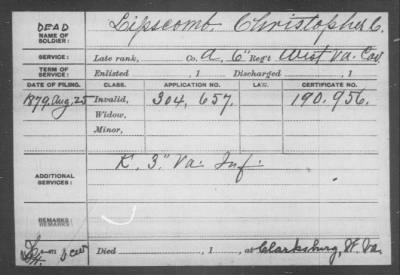 DEAD
NAME OF SOLDIER: Lipscomb, Christopher C.
SERVICE: Late rank, Co. A, 6" Reg't West Va. Cav
TERM OF SERVICE: Enlisted , 1 Discharged , 1
DATE OF FILING. CLASS. APPLICATION NO. LAW. CERTIFICATE NO.
1879, Aug. 25 Invalid, 304,657. 190.956.
Widow,
Minor,
ADDITIONAL SERVICES: K. 3" Va. Inf.
REMARKS
Died , 1 , at Clarksburg, W. Va.